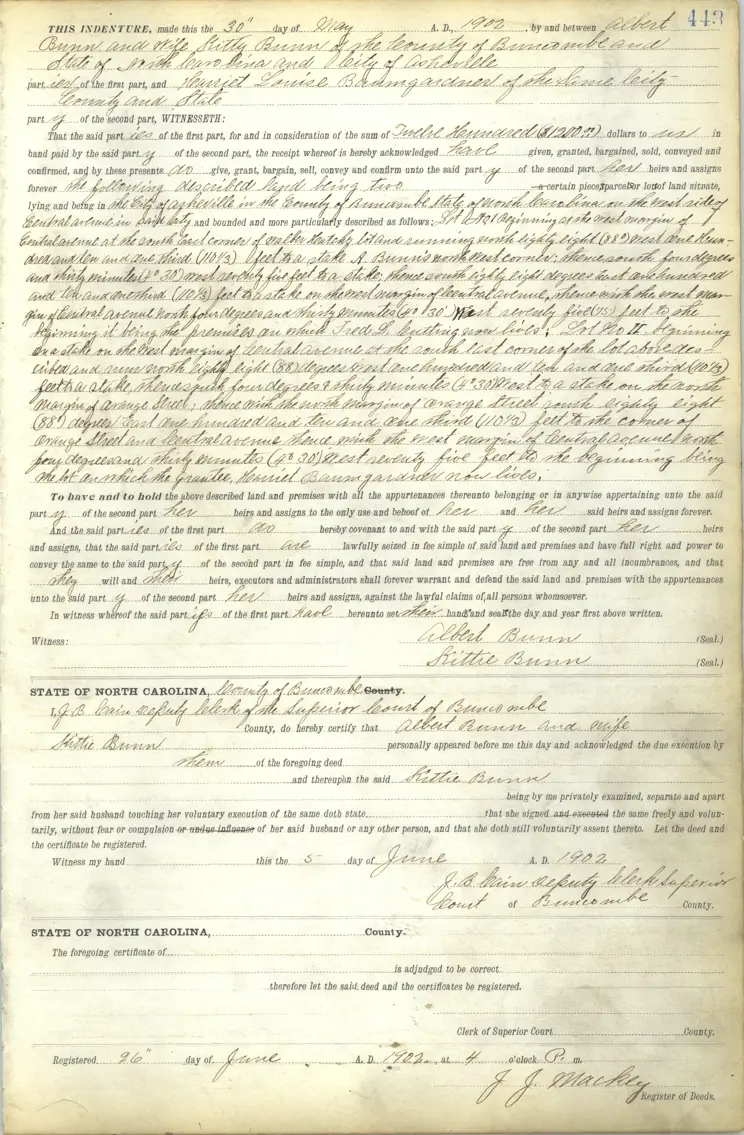 443
THIS INDENTURE, made this the 30" day of May A. D., 1902, by and between Albert
Bunn and Wife Kitty Bunn of the County of Buncombe and
State of North Carolina and City of Asheville
parties of the first part, and Harriet Louise Baumgardner of the same City
County and State
party of the second part, WITNESSETH:
That the said parties of the first part, for and in consideration of the sum of Twelve Hundred ($1200.00) dollars to us in
hand paid by the said party of the second part, the receipt whereof is hereby acknowledged have given, granted, bargained, sold, conveyed and
confirmed, and by these presents do give, grant, bargain, sell, convey and confirm unto the said party of the second part her heirs and assigns
forever the following described land being two a certain piece, parcel or lot of land situate,
lying and being in the City of Asheville in the County of Buncombe State of North Carolina on the west side of
Central avenue in said city and bounded and more particularly described as follows: Lot beginning at the west margin of
Central avenue at the south East corner of Walker lot and running north eighty eight (88°) west one Hun-
dred and ten and one third (110 1/3) feet to a stake A. Bunn's north west corner; thence south four degrees
and thirty minutes (4° 30') west seventy five feet to a stake; thence south eighty eight degrees East one hundred
and ten and one third (110 1/3) feet to a stake on the west margin of Central avenue, thence with the west mar-
gin of Central avenue north four degrees and thirty minutes (4° 30') West seventy five (75) feet to the
beginning it being the premises on which Fred L. Cutting now lives. Lot No II beginning
on a stake on the west margin of Central avenue at the south East corner of the lot above des-
cribed and runs north eighty eight (88) degrees west one hundred and ten and one third (110 1/3)
feet to a stake, thence south four degrees & thirty minutes (4° 30') West to a stake on the north
margin of Orange Street; thence with the north margin of Orange Street south eighty eight
(88°) degrees East one hundred and ten and one third (110 1/3) feet to the corner of
Orange Street and Central avenue thence with the west margin of Central avenue north
four degrees and thirty minutes (4° 30') West seventy five feet to the beginning being
the lot on which the grantee, Harriet Baumgardner now lives.
To have and to hold the above described land and premises with all the appurtenances thereunto belonging or in anywise appertaining unto the said
party of the second part her heirs and assigns to the only use and behoof of her and her said heirs and assigns forever.
And the said parties of the first part do hereby covenant to and with the said party of the second part her heirs
and assigns, that the said parties of the first part are lawfully seized in fee simple of said land and premises and have full right and power to
convey the same to the said party of the second part in fee simple, and that said land and premises are free from any and all incumbrances, and that
they will and their heirs, executors and administrators shall forever warrant and defend the said land and premises with the appurtenances
unto the said party of the second part her heirs and assigns, against the lawful claims of all persons whomsoever.
In witness whereof the said parties of the first part have hereunto set their hands and seals the day and year first above written.
Witness: Albert Bunn (Seal.)
Kittie Bunn (Seal.)
STATE OF NORTH CAROLINA, County of Buncombe County.
I, J. B. Cain Deputy Clerk of the Superior Court of Buncombe
County, do hereby certify that Albert Bunn and wife
Kittie Bunn personally appeared before me this day and acknowledged the due execution by
them of the foregoing deed
and thereupon the said Kittie Bunn
being by me privately examined, separate and apart
from her said husband touching her voluntary execution of the same doth state that she signed and executed the same freely and volun-
tarily, without fear or compulsion or undue influence of her said husband or any other person, and that she doth still voluntarily assent thereto. Let the deed and
the certificate be registered.
Witness my hand this the 5 day of June A. D. 1902
J. B. Cain Deputy Clerk Superior
Court of Buncombe County.
STATE OF NORTH CAROLINA, County.
The foregoing certificate of
is adjudged to be correct
therefore let the said deed and the certificates be registered.
Clerk of Superior Court County.
Registered 26" day of June A. D. 1902, at 4 o'clock P. m.
J. J. Mackey
Register of Deeds.